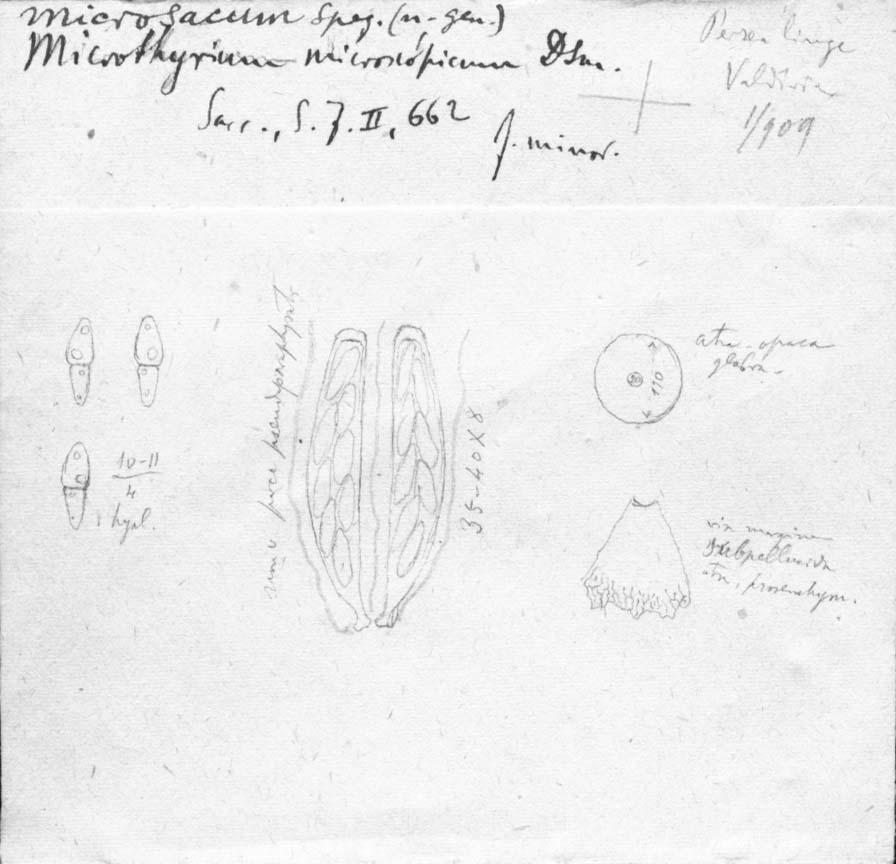 microsaccum Speg. (n. gen.)
Microthyrium microscopicum Dsm.
Sacc., S. F. II, 662
f. minor.
Persea lingue
Valdivia
1/909
10-11
4
hyal.
pseudoparaphysib
35-40 X 8
110
atra-opaca
glabra
vix margine
subpellucida
atra, prosenchym.